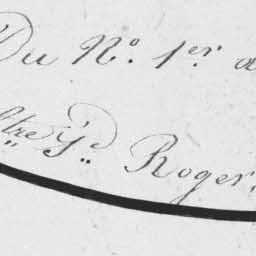 Du N.º 1.er a
Ltre G.de Roger.